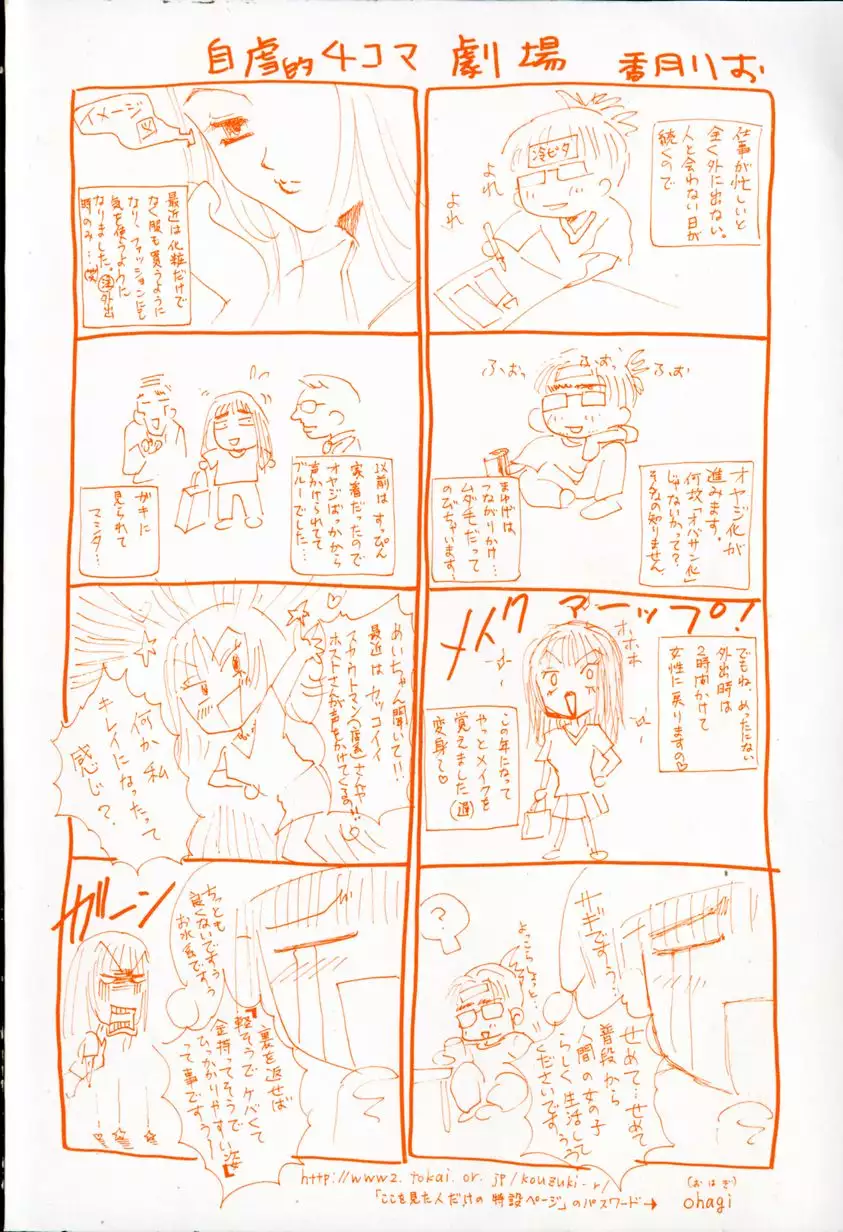 自虐的4コマ 劇場 香月りお
仕事が忙しいと
全く外に出ない。
人と会わない日が
続くので
冷ピタ
よれ
よれ
ふおっ
ふおっ
ふぉ
オヤジ化が
進みます。
何故「オバサン化」
じゃないかって?
そんなの知りません
まゆげは、
つながりかけ…
ムダ毛だって
のびちゃいます…
メイクアーップ!
ホホホ
でもね、めったにない
外出時は
2時間かけて
女性に戻りますの♡
この年になって
やっとメイクを
覚えました(遅)
変身〜♡
サギですぅ…
せめて…せめて
普段から
人間の女の子
らしく生活して
くださいですぅぅ
?
よっこらしょっと…
イメージ図
最近は化粧だけで
なく服も買うように
なり、ファッションにも
気を使うように
なりました。㊟外出
時のみ…(笑)
以前は すっぴん
家着だったので
オヤジばっかから
声かけられてて
ブルーでした…
ガキに
見られて
マシタ…
めいちゃん聞いて!!
最近は カッコイイ
スカウトマン(風)さんや
ホストさんが声をかけてくるの!!♡
何か私
キレイになったって
感じ?
ガーン
ちっとも
良くないですぅ
お水系ですぅ
裏を返せば
『軽そうで ケバくて
金持ってそうで
ひっかかりやすい姿』
って事ですぅ〜!
http://www2.tokai.or.jp/kouzuki-r/
「ここを見た人だけの 特設ページ」のパスワード→
(おはぎ)
ohagi